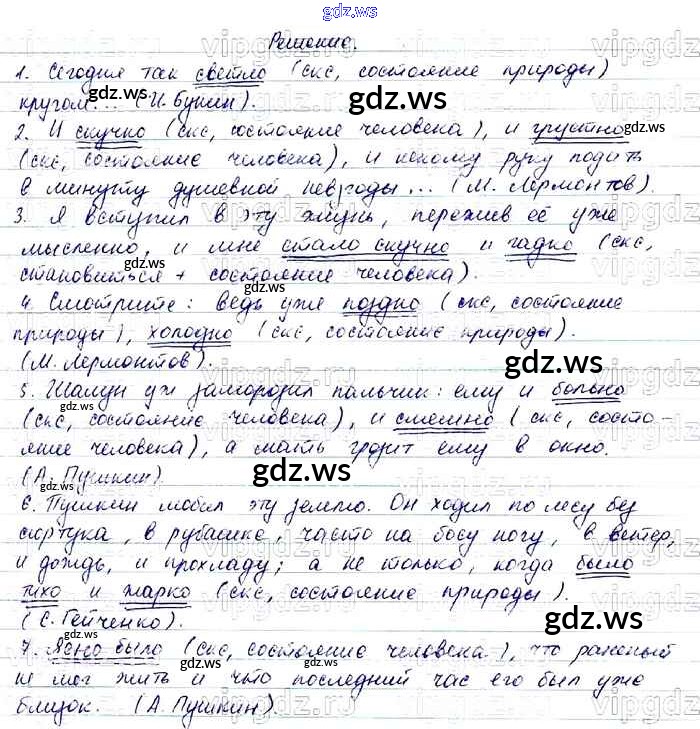 gdz.ws
Решение.
1. Сегодня так светло (скс, состояние природы)
кругом... (И. Бунин).
2. И скучно (скс, состояние человека), и грустно
(скс, состояние человека), и некому руку подать
в минуту душевной невзгоды... (М. Лермонтов).
3. Я вступил в эту жизнь, пережив её уже
мысленно, и мне стало скучно и гадко (скс,
становиться + состояние человека).
4. Смотрите: ведь уже поздно (скс, состояние
природы), холодно (скс, состояние природы).
(М. Лермонтов).
5. Шалун уж заморозил пальчик: ему и больно
(скс, состояние человека), и смешно (скс, состо-
яние человека), а мать грозит ему в окно.
(А. Пушкин)
6. Пушкин любил эту землю. Он ходил по лесу без
сюртука, в рубашке, часто на босу ногу, в ветер,
и дождь, и прохладу; а не только, когда было
тихо и жарко (скс, состояние природы).
(С. Гейченко).
7. Ясно было (скс, состояние человека), что раненый
не мог жить и что последний час его был уже
близок. (А. Пушкин).